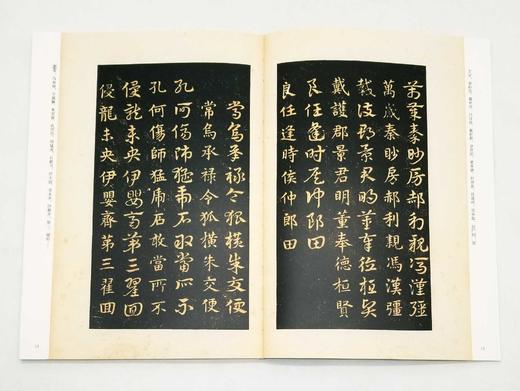 萬歲秦眇房郝利親馮漢彊
萬歲秦眇房郝利親馮漢彊
戴護郡景君明董奉德桓賢
戴護郡景君明董奉德桓賢
良任逢時侯仲郎田
良任逢時侯仲郎田
常烏承祿令狐橫朱交便
常烏承祿令狐橫朱交便
孔何傷師猛虎石敢當所不
孔何傷師猛虎石敢當所不
侵龍未央伊嬰齊第三翟回
侵龍未央伊嬰齊第三翟回
14